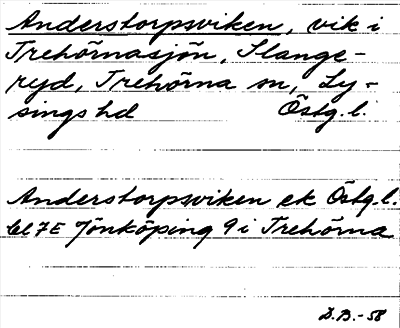 Anderstorpsviken, vik i
Trehörnasjön, Slange-
ryd, Trehörna sn, Ly-
sings hd Östg.l.
Anderstorpsviken ek Östg.l.
bl 7E Jönköping 9 i Trehörna
D.B.-58